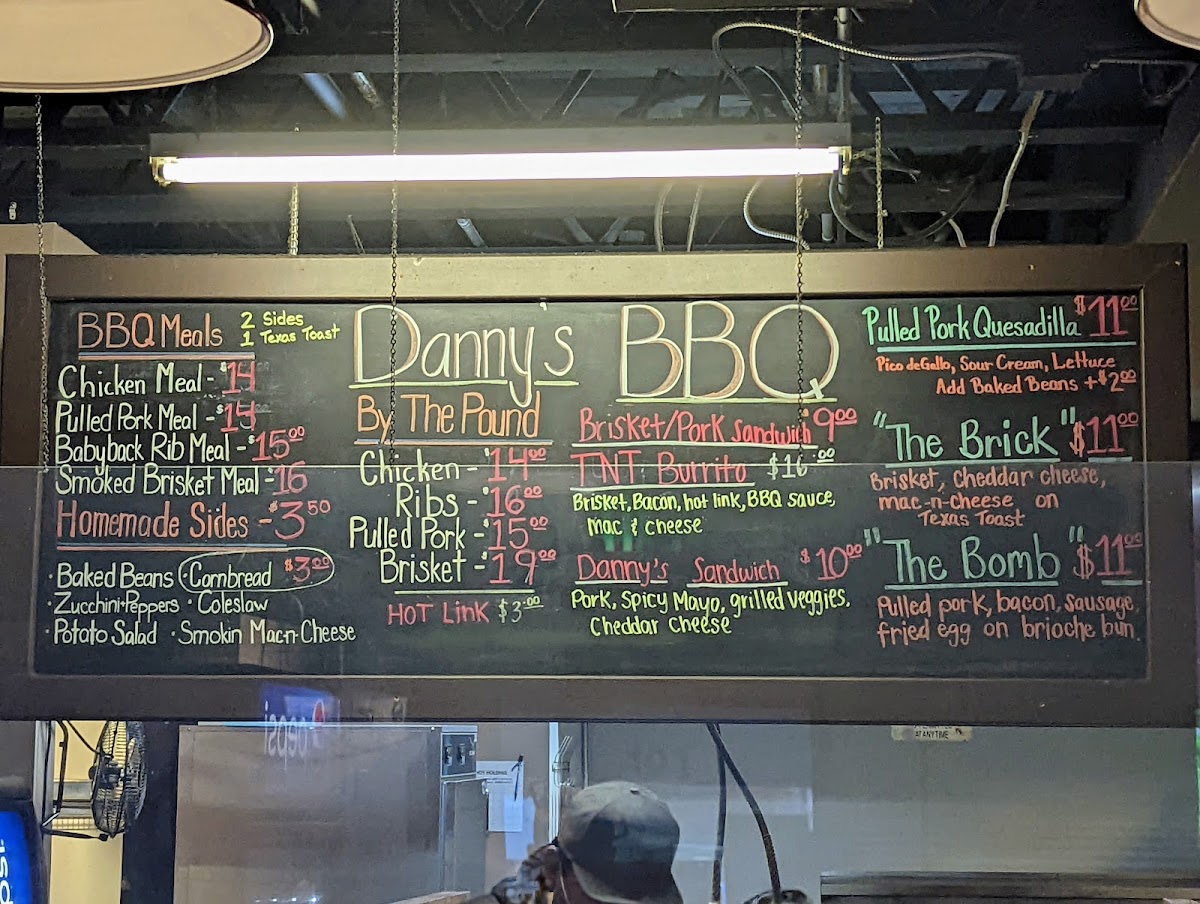 BBQ Meals
2 Sides
1 Texas Toast
Chicken Meal - $14
Pulled Pork Meal - $14
Babyback Rib Meal - $15.00
Smoked Brisket Meal - $16
Homemade Sides - $3.50
· Baked Beans · Cornbread $3.00
· Zucchini + Peppers · Coleslaw
· Potato Salad · Smokin Mac-n-Cheese
Danny's BBQ
By The Pound
Chicken - $14.00
Ribs - $16.00
Pulled Pork - $15.00
Brisket - $19.00
Hot Link $3.00
Brisket/Pork Sandwich $9.00
TNT Burrito $16.00
Brisket, Bacon, hot link, BBQ sauce,
mac & cheese
Danny's Sandwich $10.00
Pork, Spicy Mayo, grilled veggies.
Cheddar cheese
Pulled Pork Quesadilla $11.00
Pico de Gallo, Sour Cream, Lettuce
Add Baked Beans + $2.00
"The Brick" $11.00
Brisket, Cheddar cheese,
mac-n-cheese on
Texas Toast
"The Bomb" $11.00
Pulled pork, bacon, sausage,
fried egg on brioche bun.
pepsi
AT ANYTIME
HOT HOLDING